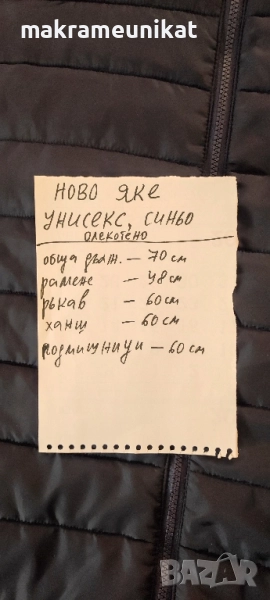 makrameunikat
НОВО ЯКЕ
УНИСЕКС, СИНЬО
олекотено
обща дълж. — 70 см
рамене — 48 см
ръкав — 60 см
ханш — 60 см
подмишници — 60 см
BAZAR